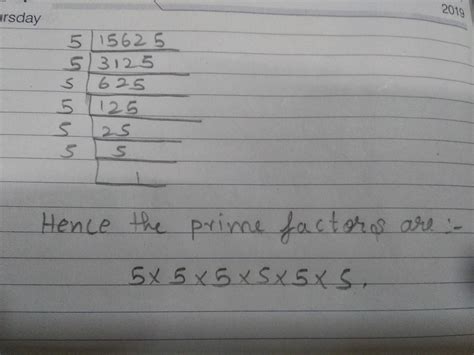 ursday
2019
5 | 15625
5 | 3125
5 | 625
5 | 125
5 | 25
5 | 5
1
Hence the prime factors are :-
5 × 5 × 5 × 5 × 5 × 5.